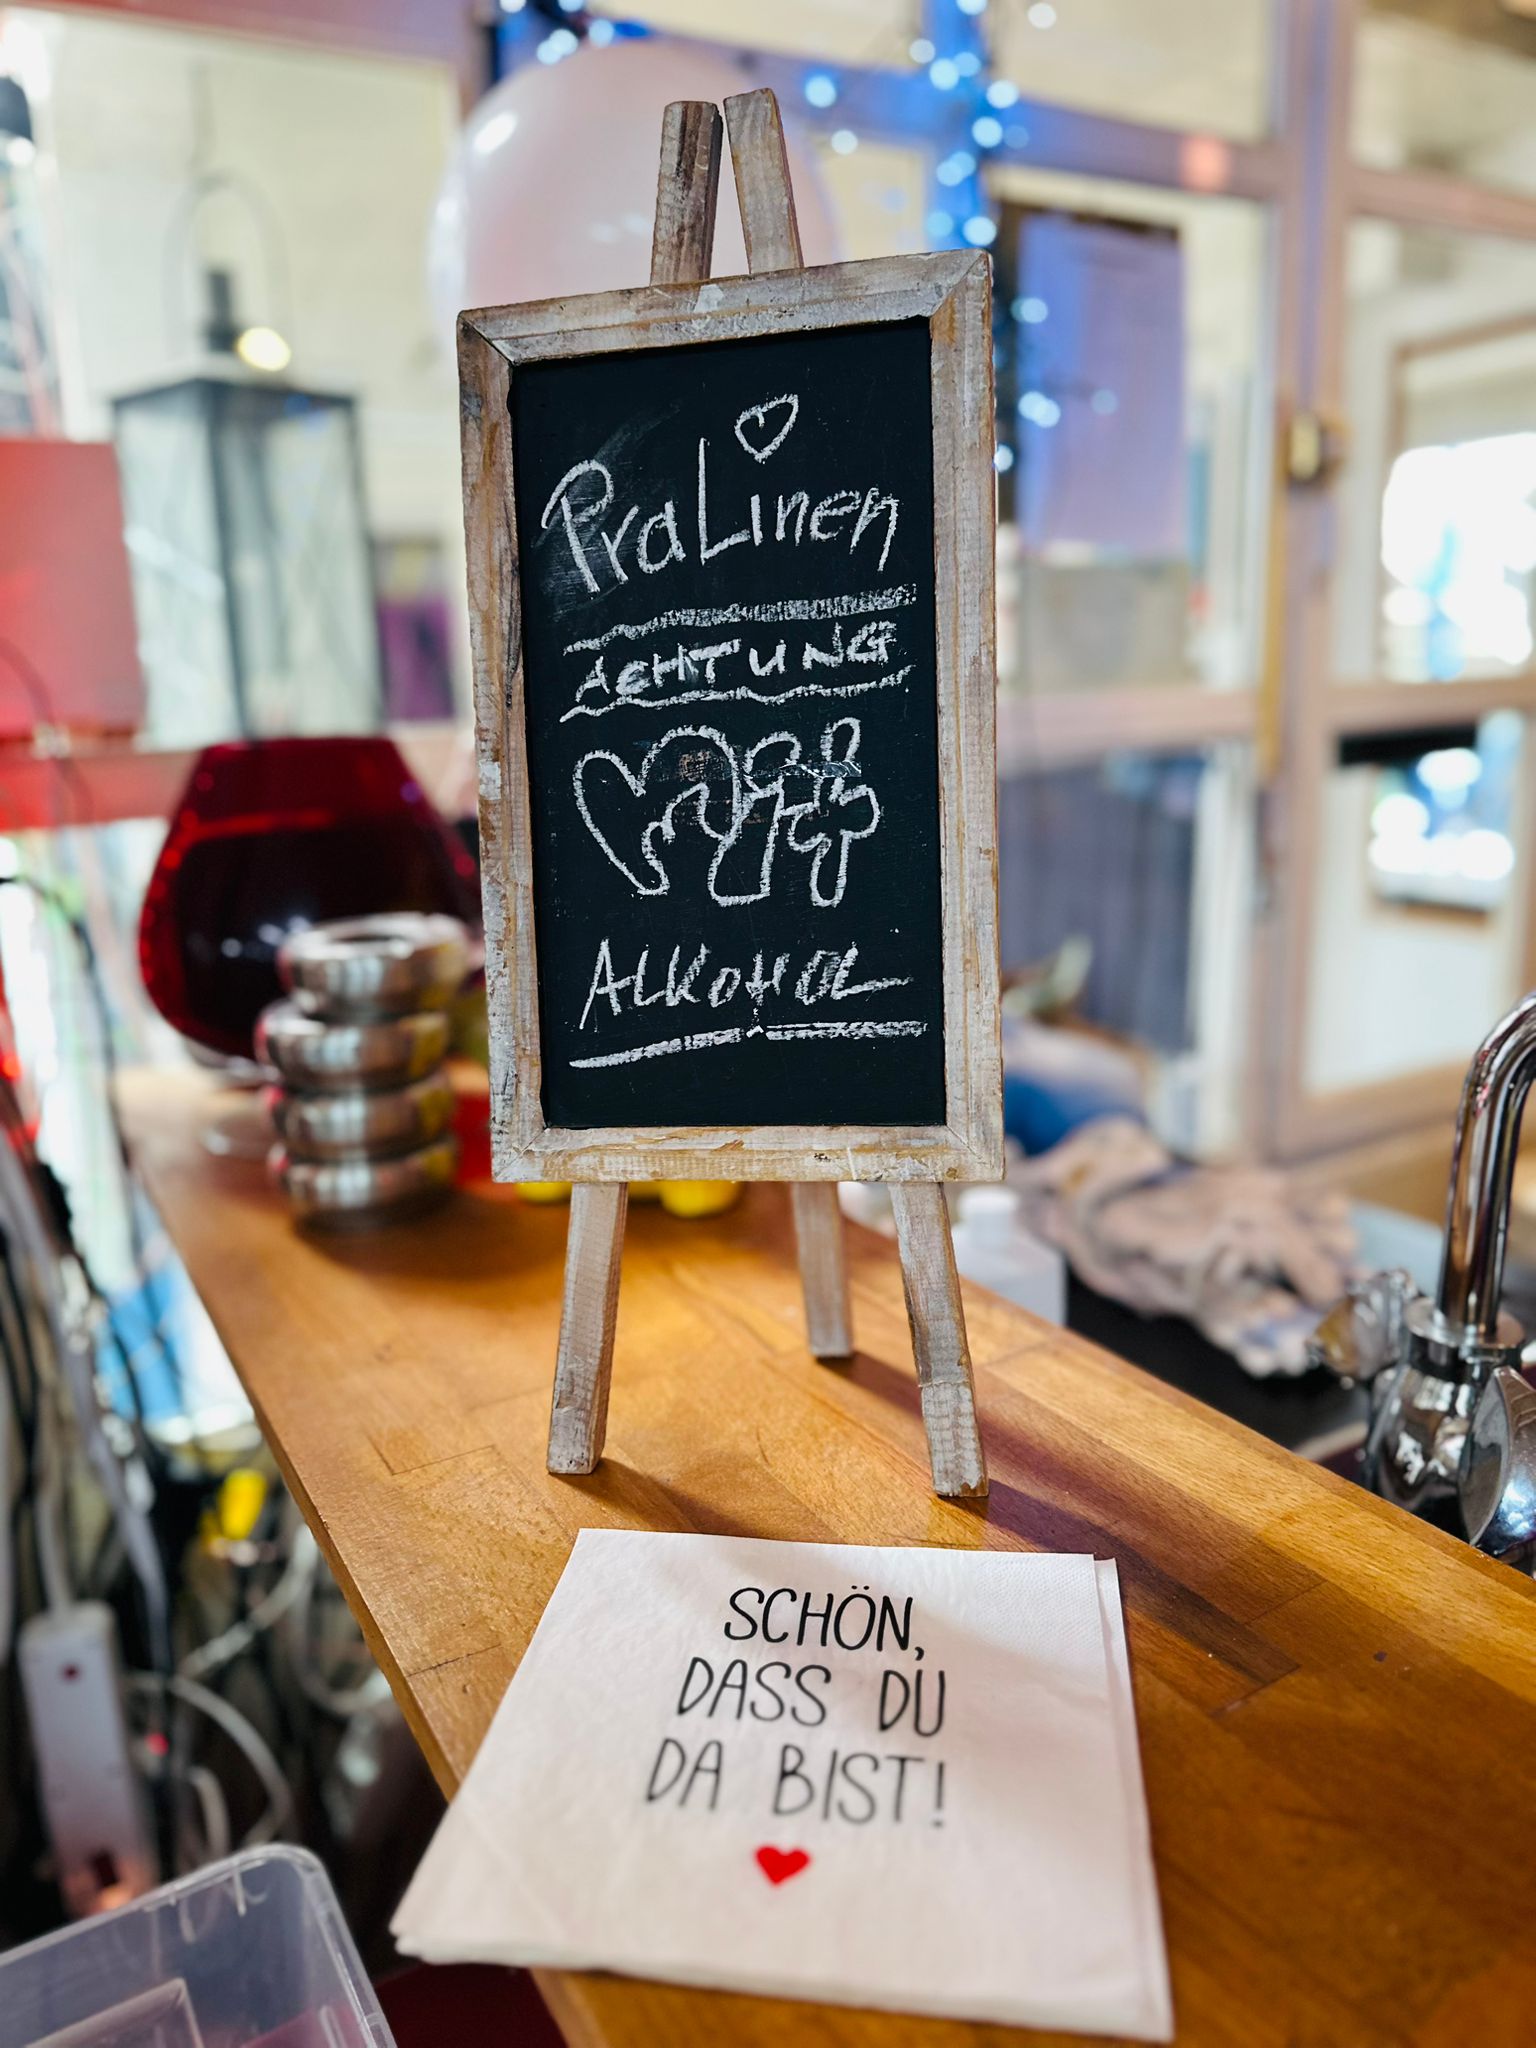 PraLinen
ACHTUNG
mit
ALKOHOL
SCHÖN,
DASS DU
DA BIST!